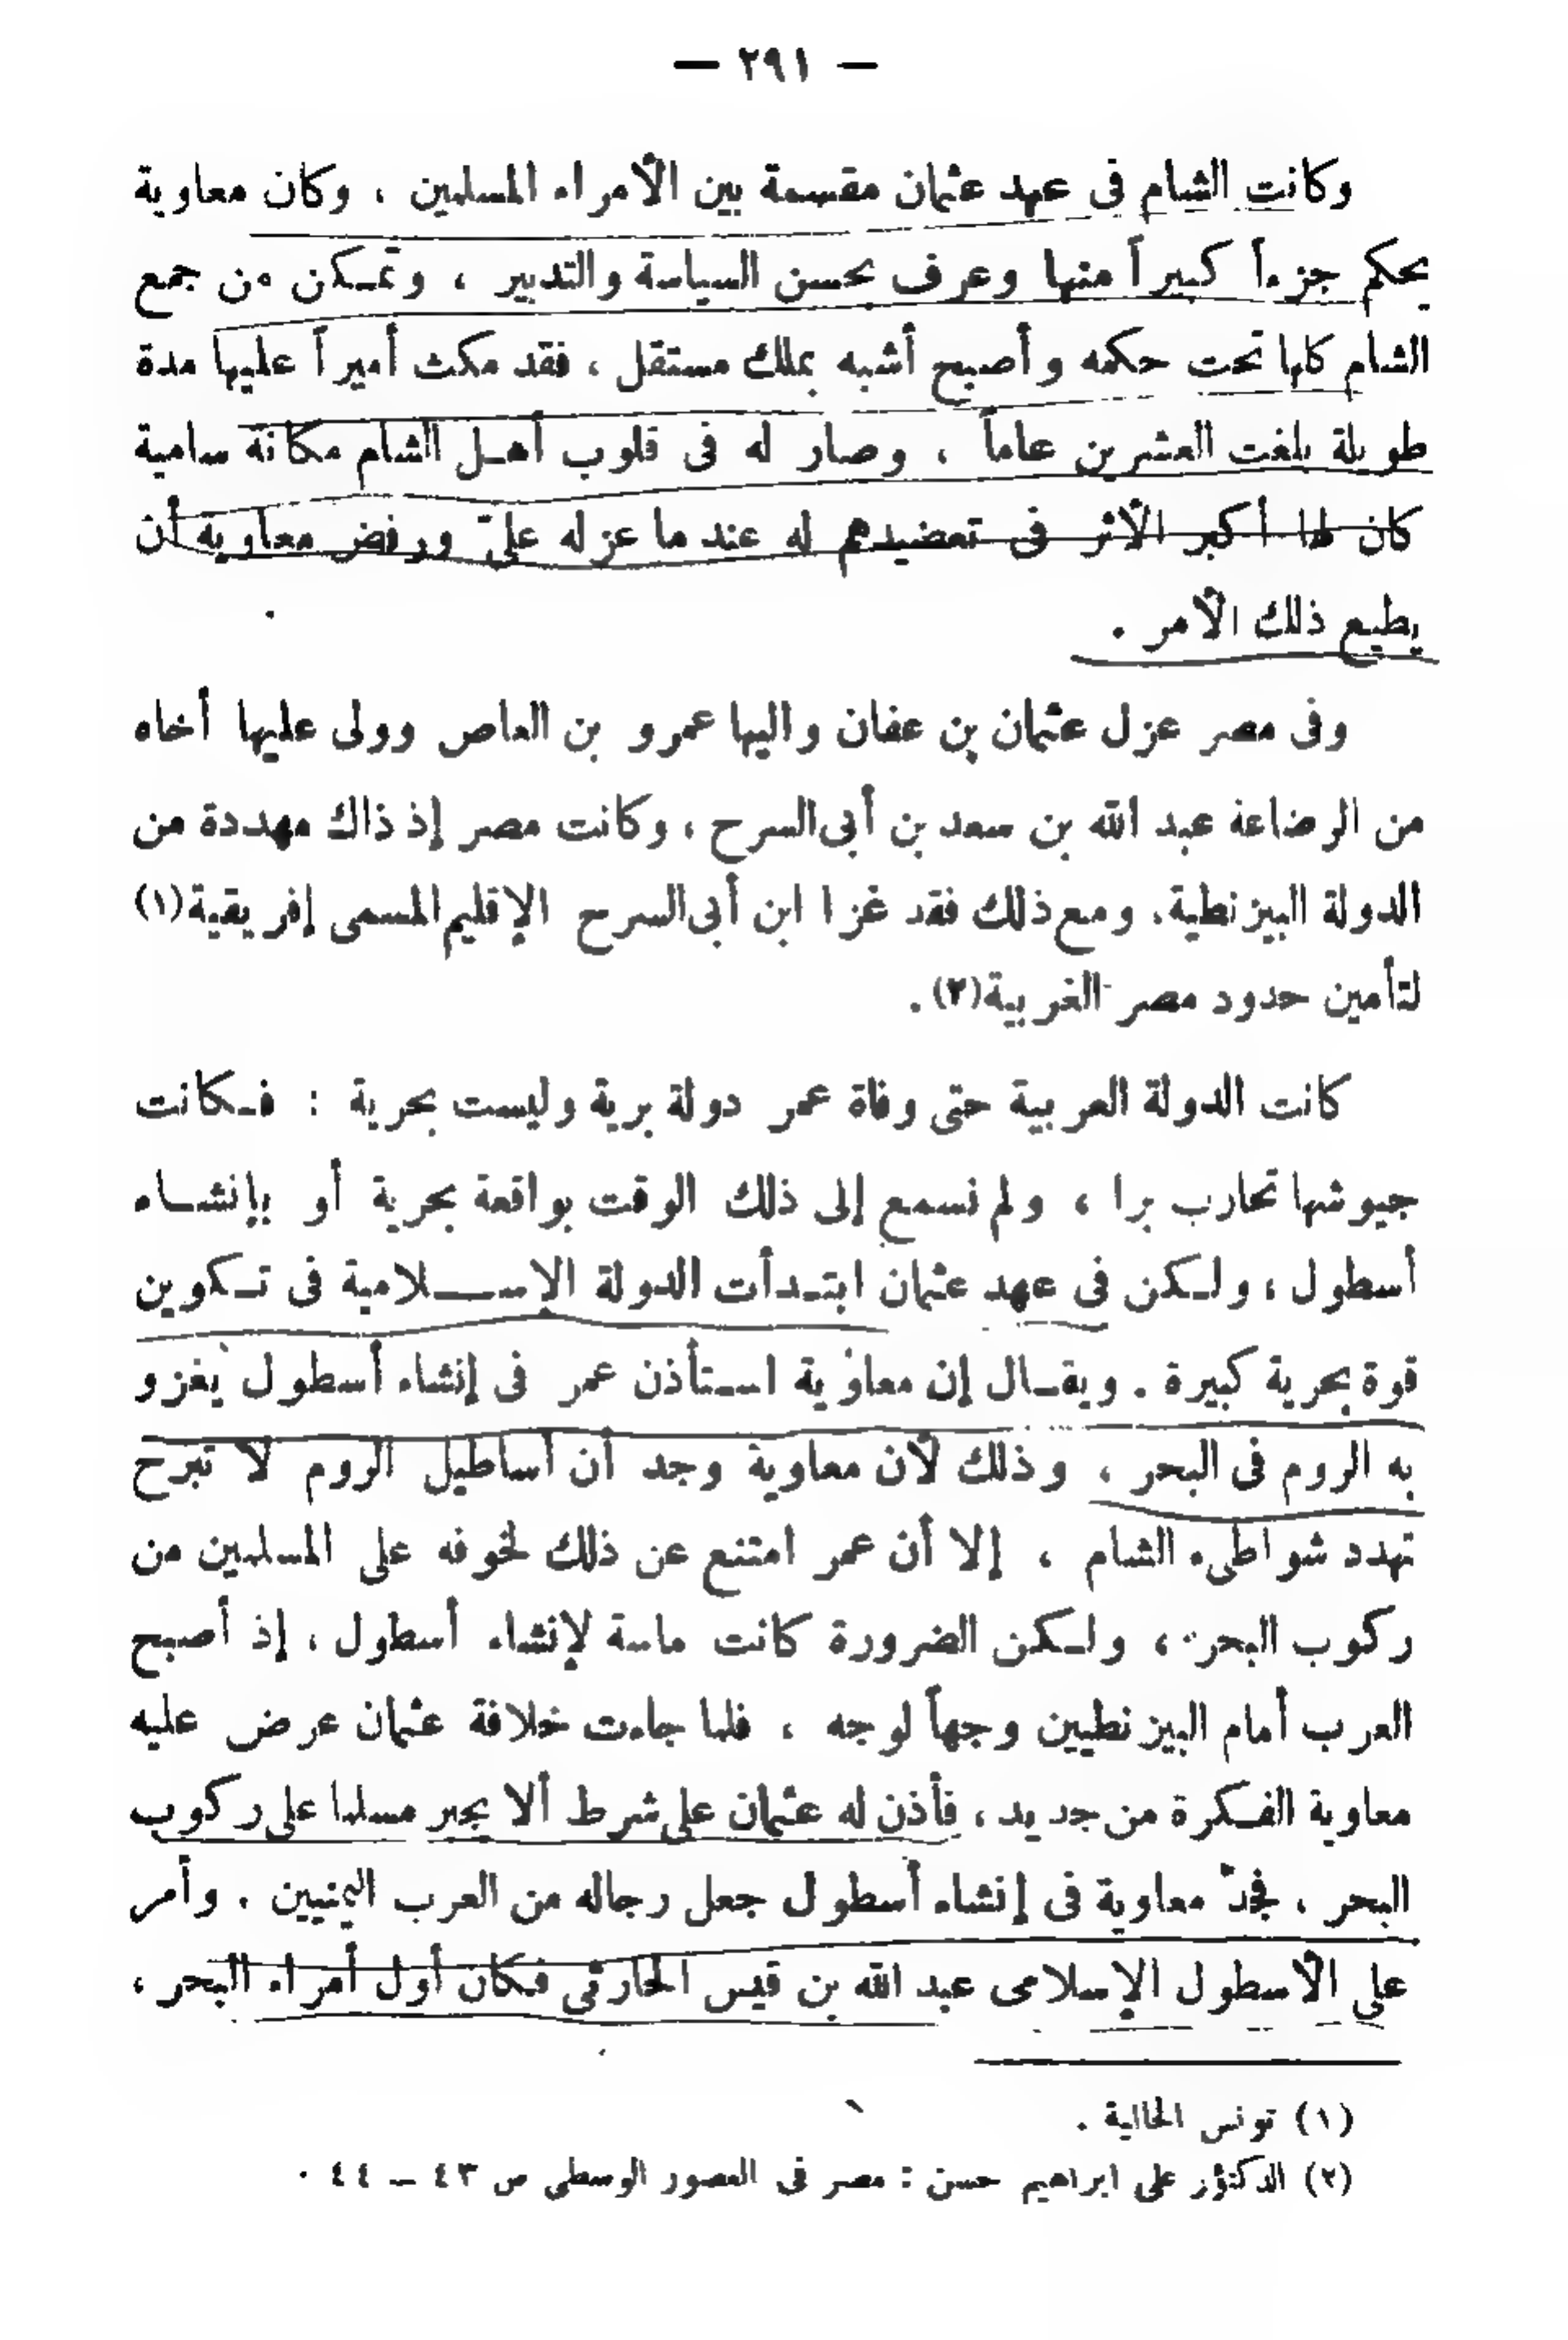 — ٢٩١ —
وكانت الشام فى عهد عثمان مقسمة بين الأمراء المسلمين ، وكان معاوية
يحكم جزءاً كبيراً منها وعرف بحسن السياسة والتدبير ، وتمكن من جمع
الشام كلها تحت حكمه وأصبح أشبه بملك مستقل ، فقد مكث أميراً عليها مدة
طويلة بلغت العشرين عاماً ، وصار له فى قلوب أهل الشام مكانة سامية
كان لها أكبر الأثر فى تعضيدهم له عند ما عزله علىّ ورفض معاوية أن
يطيع ذلك الأمر .
وفى مصر عزل عثمان بن عفان واليها عمرو بن العاص وولى عليها أخاه
من الرضاعة عبد الله بن سعد بن أبى السرح ، وكانت مصر إذ ذاك مهددة من
الدولة البيزنطية . ومع ذلك فقد غزا ابن أبى السرح الإقليم المسمى إفريقية(١)
لتأمين حدود مصر الغربية(٢) .
كانت الدولة العربية حتى وفاة عمر دولة برية وليست بحرية : فكانت
جيوشها تحارب برا ، ولم نسمع إلى ذلك الوقت بواقعة بحرية أو بإنشاء
أسطول ، ولكن فى عهد عثمان ابتدأت الدولة الإسلامية فى تكوين
قوة بحرية كبيرة . ويقال إن معاوية استأذن عمر فى إنشاء أسطول يغزو
به الروم فى البحر ، وذلك لأن معاوية وجد أن أساطيل الروم لا تبرح
تهدد شواطىء الشام ، إلا أن عمر امتنع عن ذلك لخوفه على المسلمين من
ركوب البحر ، ولكن الضرورة كانت ماسة لإنشاء أسطول ، إذ أصبح
العرب أمام البيزنطيين وجهاً لوجه ، فلما جاءت خلافة عثمان عرض عليه
معاوية الفكرة من جديد ، فأذن له عثمان على شرط ألا يجبر مسلما على ركوب
البحر ، فجدّ معاوية فى إنشاء أسطول جعل رجاله من العرب اليمنيين . وأمر
على الأسطول الإسلامى عبد الله بن قيس الحارثى فكان أول أمراء البحر ،
(١) تونس الحالية .
(٢) الدكتور على ابراهيم حسن : مصر فى العصور الوسطى ص ٤٣ – ٤٤ .